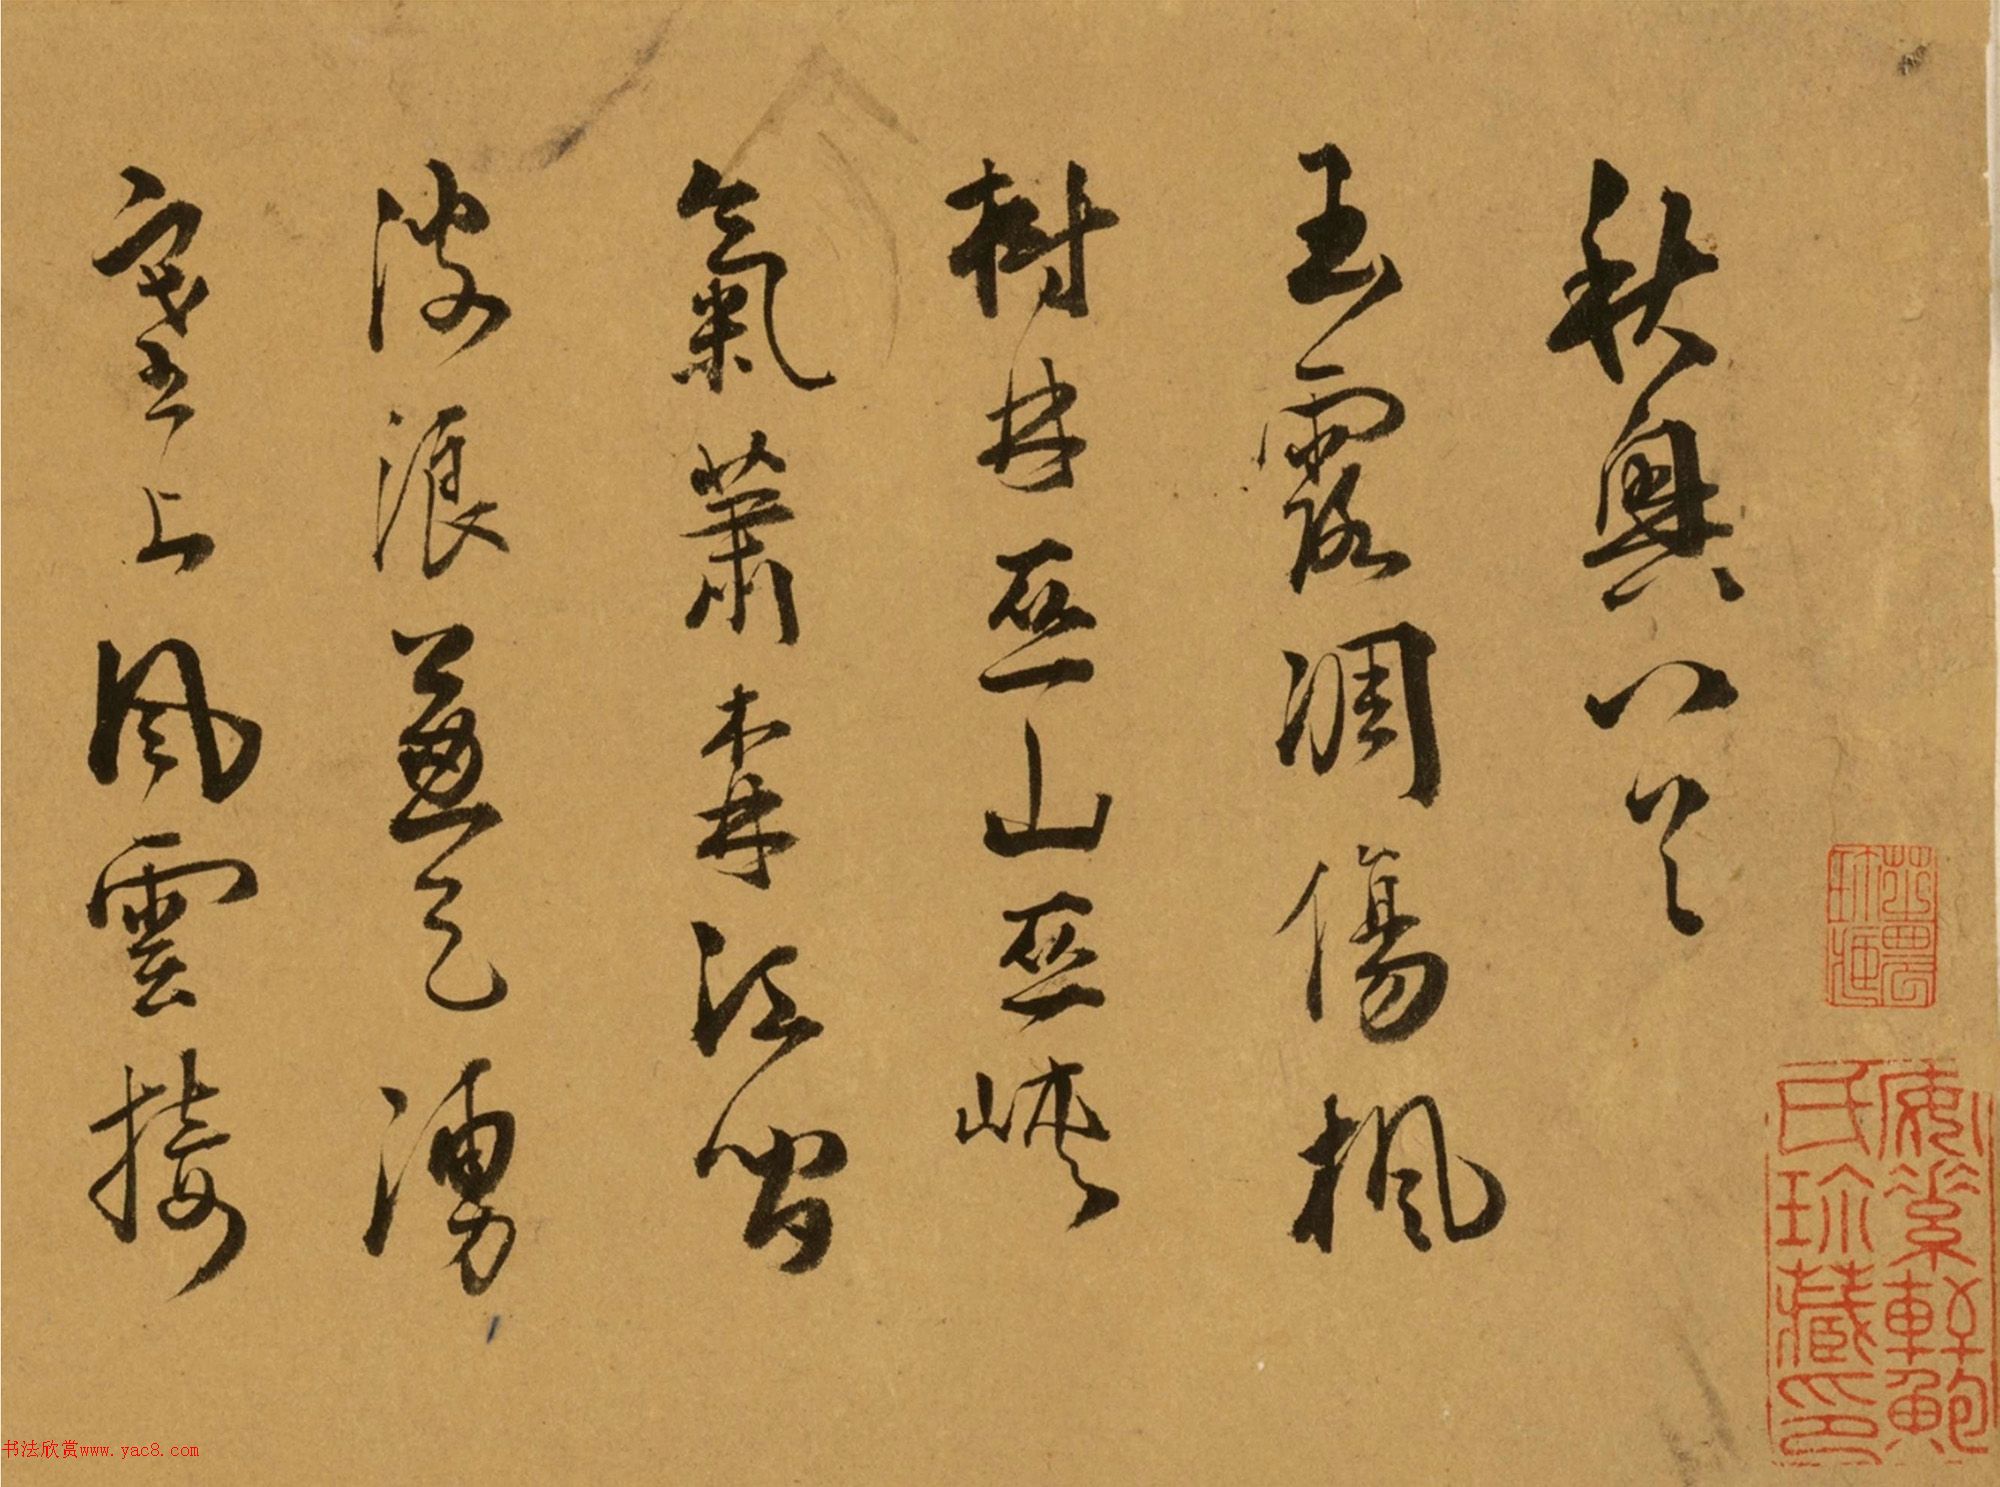 秋興八首
玉露凋傷楓
樹林巫山巫峽
氣蕭森江間
波浪兼天湧
塞上風雲接
素軒鮑
氏珎藏印
书法欣赏www.yac8.com